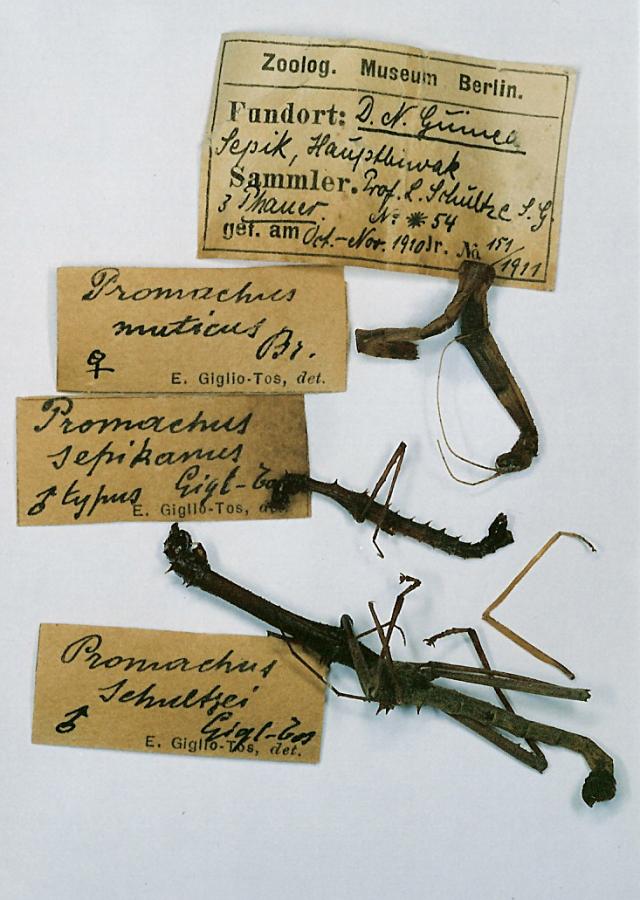 Zoolog. Museum Berlin.
Fundort: D. N. Guinea
Sepik, Hauptbiwak
Sammler. Prof. L. Schultze S. G.
3 Phauer. No ✳ 54
gef. am Oct.-Nov. 1910 Jr. No 151/1911
Promachus
muticus Br.
♀
E. Giglio-Tos, det.
Promachus
sepikanus
♂ typus Gigl-Tos
E. Giglio-Tos, det.
Promachus
Schultzei
♂ Gigl-Tos
E. Giglio-Tos, det.